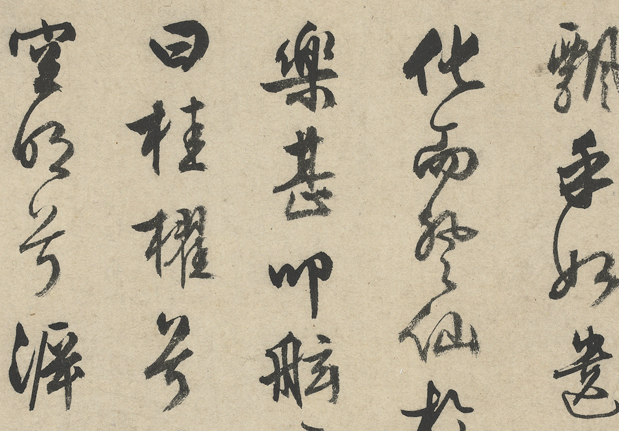 飄乎如遺
化而登仙於
樂甚叩舷
曰桂櫂兮
空明兮泝